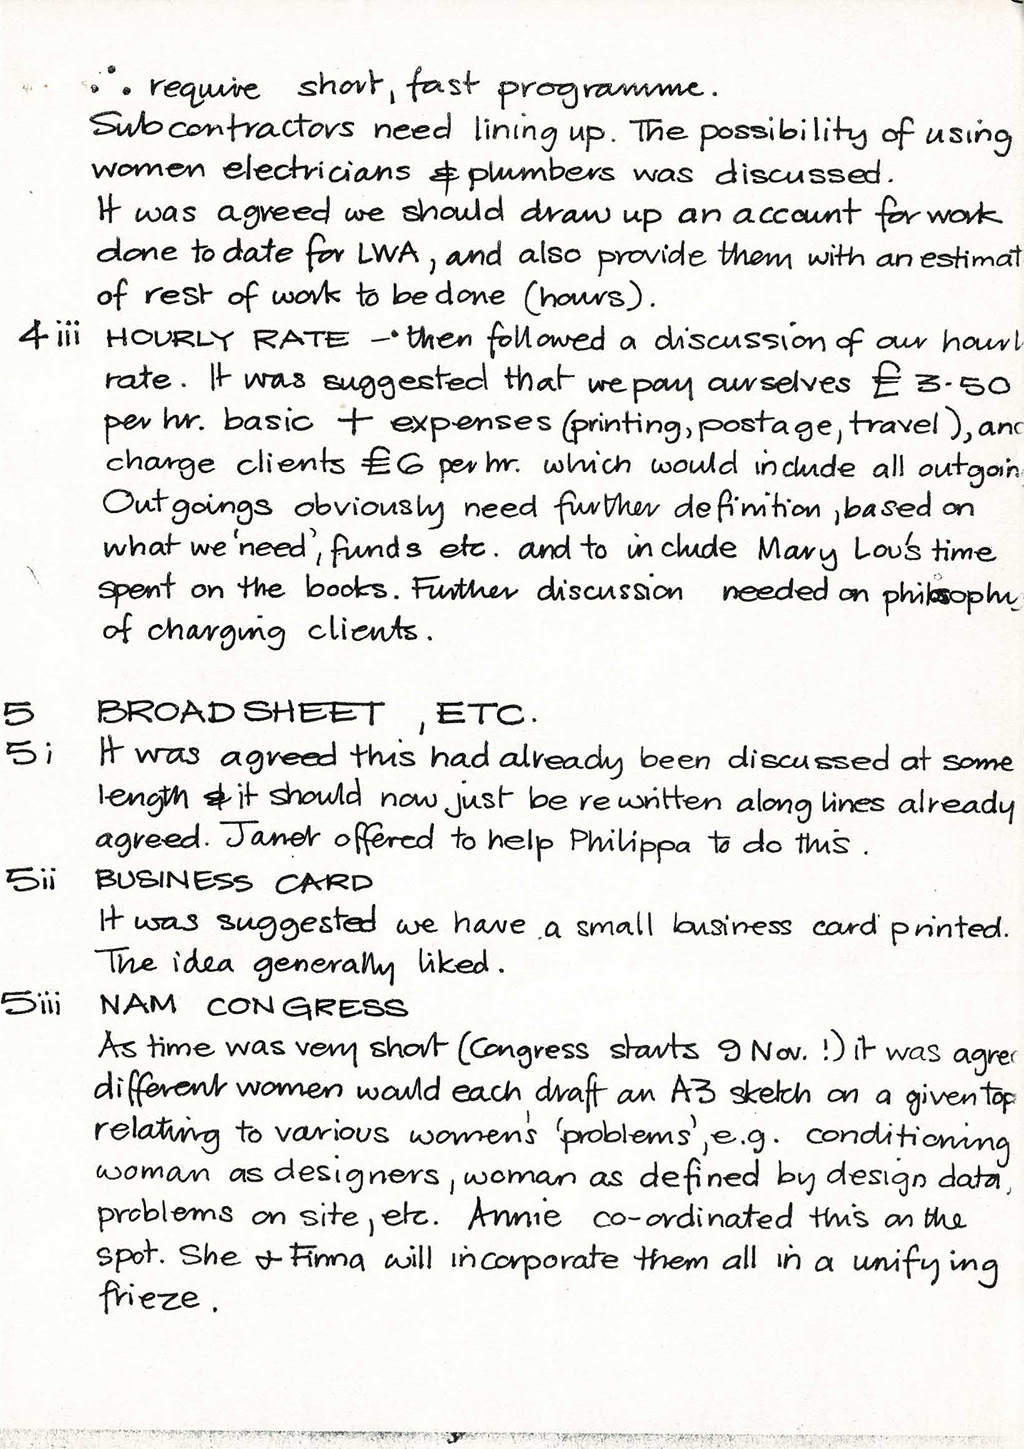 ∴ require short, fast programme.
Subcontractors need lining up. The possibility of using
women electricians & plumbers was discussed.
It was agreed we should draw up an account for work
done to date for LWA, and also provide them with an estimat
of rest of work to be done (hours).
4iii HOURLY RATE – then followed a discussion of our hourl
rate. It was suggested that we pay ourselves £3.50
per hr. basic + expenses (printing, postage, travel), and
charge clients £6 per hr. which would include all outgoin
Outgoings obviously need further definition, based on
what we 'need', funds etc. and to include Mary Lou's time
spent on the books. Further discussion needed on philosophy
of charging clients.
5 BROADSHEET, ETC.
5i It was agreed this had already been discussed at some
length & it should now just be rewritten along lines already
agreed. Janet offered to help Philippa to do this.
5ii BUSINESS CARD
It was suggested we have a small business card printed.
The idea generally liked.
5iii NAM CONGRESS
As time was very short (Congress starts 9 Nov. !) it was agree
different women would each draft an A3 sketch on a given top
relating to various women's 'problems', e.g. conditioning
woman as designers, woman as defined by design data,
problems on site, etc. Annie co-ordinated this on the
spot. She & Finna will incorporate them all in a unifying
frieze.